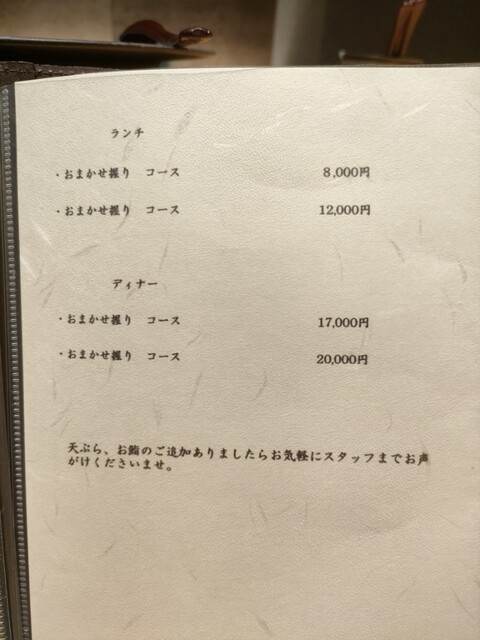 ランチ
・おまかせ握り　コース　8,000円
・おまかせ握り　コース　12,000円
ディナー
・おまかせ握り　コース　17,000円
・おまかせ握り　コース　20,000円
天ぷら、お鮨のご追加ありましたらお気軽にスタッフまでお声
がけくださいませ。